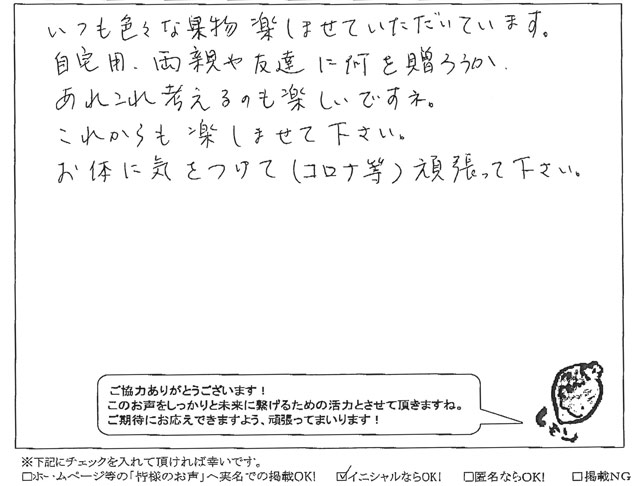 いつも色々な果物楽しませていただいています。
自宅用、両親や友達に何を贈ろうか、
あれこれ考えるのも楽しいですネ。
これからも楽しませて下さい。
お体に気をつけて(コロナ等)頑張って下さい。
ご協力ありがとうございます！
このお声をしっかりと未来に繋げるための活力とさせて頂きますね。
ご期待にお応えできますよう、頑張ってまいります！
※下記にチェックを入れて頂ければ幸いです。
□ホームページ等の「皆様のお声」へ実名での掲載OK! ☑イニシャルならOK! □匿名ならOK! □掲載NG